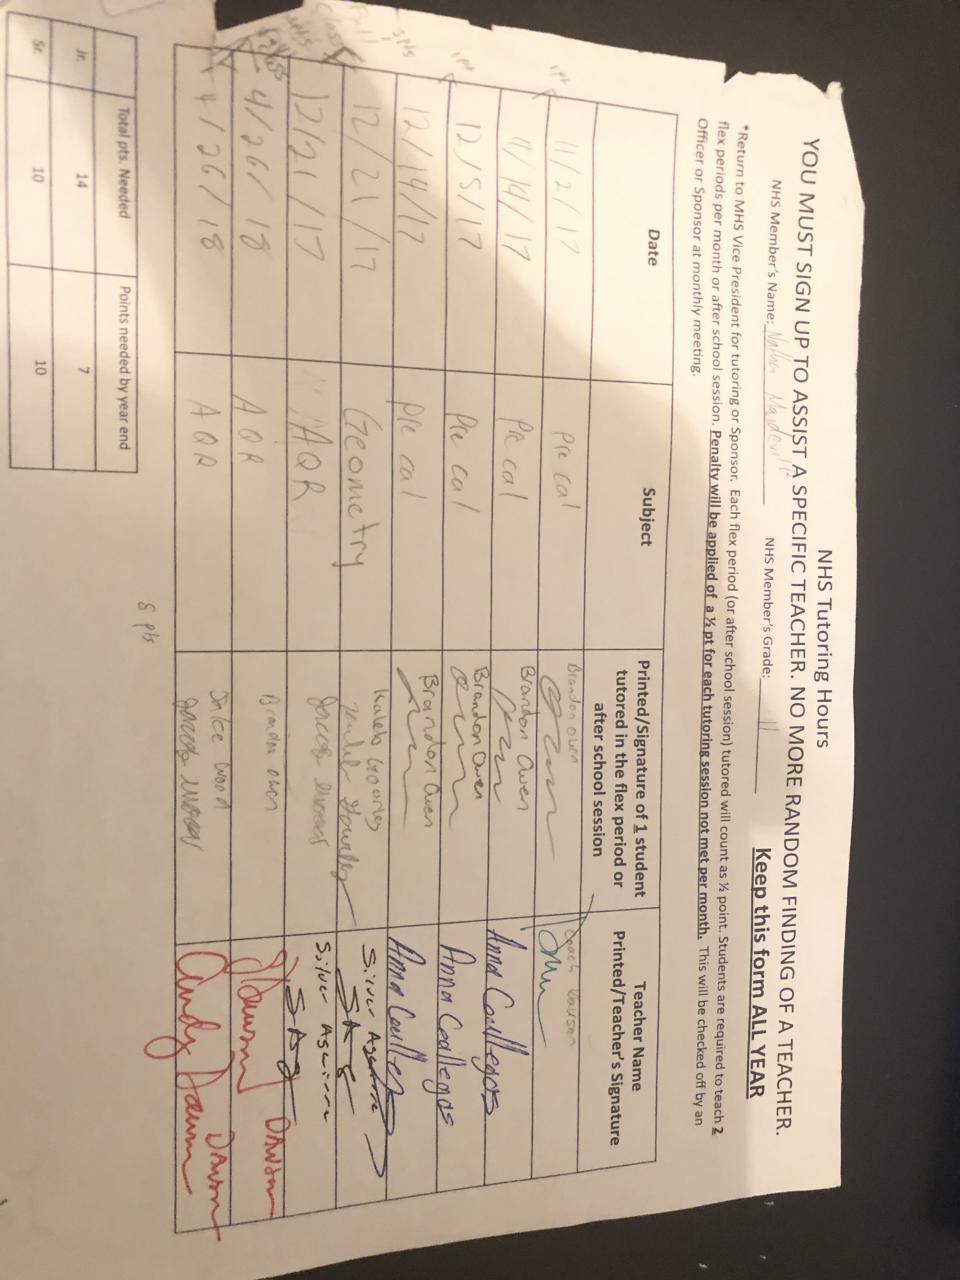 NHS Tutoring Hours
YOU MUST SIGN UP TO ASSIST A SPECIFIC TEACHER. NO MORE RANDOM FINDING OF A TEACHER.
NHS Member's Name: Nathan NHS Member's Grade: 11 Keep this form ALL YEAR
*Return to MHS Vice President for tutoring or Sponsor. Each flex period (or after school session) tutored will count as ½ point. Students are required to teach 2
flex periods per month or after school session. Penalty will be applied of a ½ pt for each tutoring session not met per month. This will be checked off by an
Officer or Sponsor at monthly meeting.
Date Subject Printed/Signature of 1 student tutored in the flex period or after school session Teacher Name Printed/Teacher's Signature
1pt 11/2/17 Pre cal Brandon Owen Coach Dawson
11/14/17 Pre cal Brandon Owen Anna Gallegos
1pt 12/5/17 Pre cal Brandon Owen Anna Gallegos
3pts 12/14/17 Pre cal Brandon Owen Anna
12/21/17 Geometry Kaleb Silver Aguirre
12/21/17 AQR Silver Aguirre
4/26/18 AQR Brandon Owen Dawson
4/26/18 AQR Jake Wood Dawson
8 pts
Total pts. Needed Points needed by year end
Jr. 14 7
Sr. 10 10